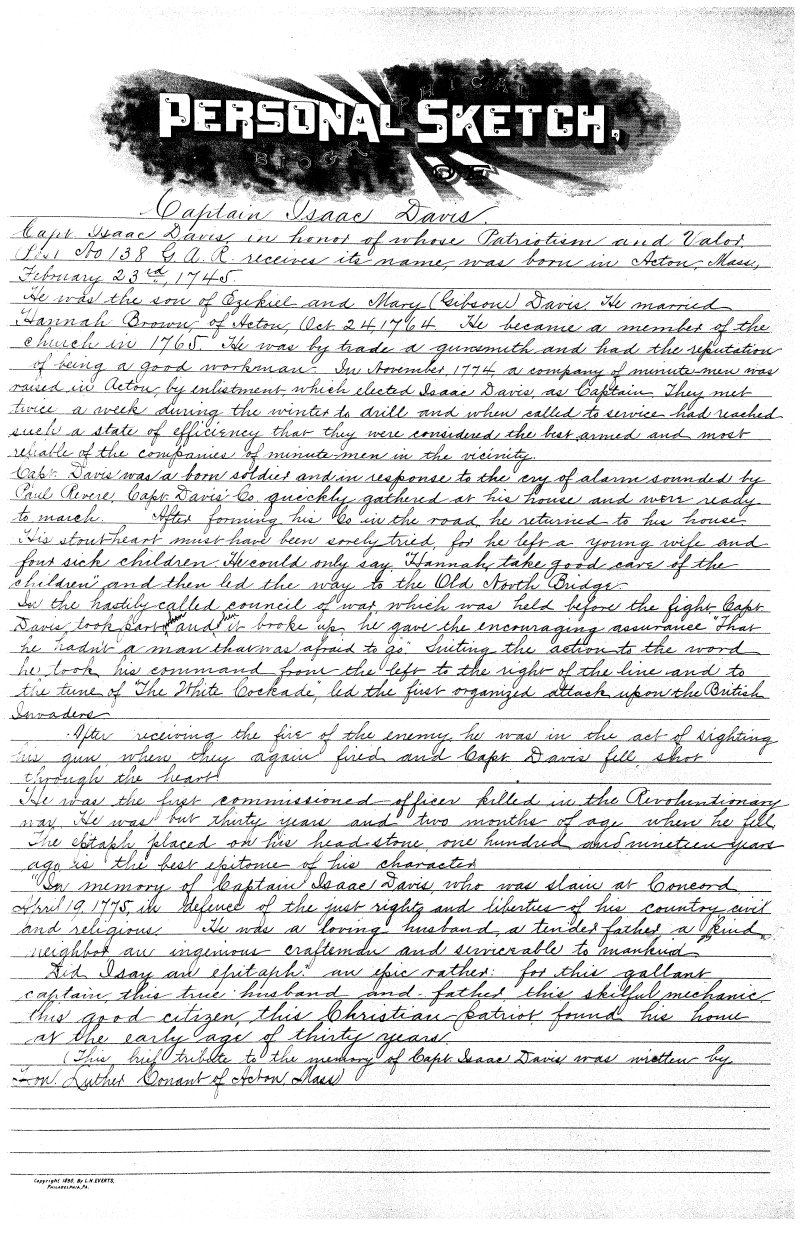 BIOGRAPHICAL
PERSONAL SKETCH,
OF
Captain Isaac Davis
Capt. Isaac Davis, in honor of whose Patriotism and Valor
Post No 138 G A. R. receives its name, was born in Acton, Mass,
February 23rd, 1745.
He was the son of Ezekiel and Mary (Gibson) Davis. He married
Hannah Brown, of Acton, Oct 24 1764. He became a member of the
church in 1765. He was by trade a gunsmith and had the reputation
of being a good workman. In November, 1774, a company of minute-men was
raised in Acton, by enlistment which elected Isaac Davis, as Captain. They met
twice a week during the winter to drill and when called to service had reached
such a state of efficiency that they were considered the best armed and most
reliable of the companies of minute-men in the vicinity.
Capt. Davis was a born soldier and in response to the cry of alarm sounded by
Paul Revere, Capt. Davis' Co. quickly gathered at his house and were ready
to march. After forming his Co in the road, he returned to his house.
His stout heart must have been sorely tried, for he left a young wife and
four sick children. He could only say, "Hannah, take good care of the
children" and then led the way to the Old North Bridge.
In the hastily called council of war, which was held before the fight Capt.
Davis, took part and when it broke up, he gave the encouraging assurance "That
he hadn't a man that was afraid to go". Suiting the action to the word
he took his command from the left to the right of the line and to
the tune of "The White Cockade", led the first organized attack upon the British
Invaders
After receiving the fire of the enemy, he was in the act of sighting
his gun, when they again fired and Capt. Davis fell, shot
through the heart.
He was the first commissioned officer killed in the Revoluntionary
war. He was but thirty years and two months of age when he fell.
The epitaph placed on his head-stone, one hundred and nineteen years
ago, is the best epitome of his character
"In memory of Captain Isaac Davis, who was slain at Concord,
April 19, 1775, in defence of the just rights and liberties of his country, civil
and religious. He was a loving husband, a tender father, a kind
neighbor an ingenious craftsman and serviceable to mankind"
Did I say an epitaph? an epic rather: for this gallant
captain, this true husband and father, this skilful mechanic,
this good citizen, this Christian patriot found his home
at the early age of thirty years.
(This brief tribute to the memory of Capt. Isaac Davis was written by
Hon. Luther Conant of Acton, Mass)
Copyright 1890, By L.H. EVERTS,
PHILADELPHIA, PA.